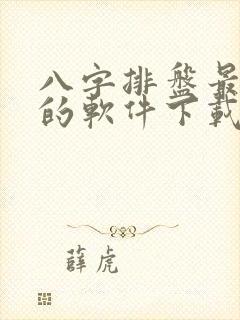 八字排盘最
的軟件下載
薛虎